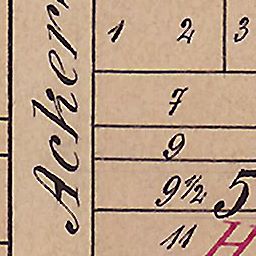 Acker
1 2 3
7
9
9½ 5
11 H